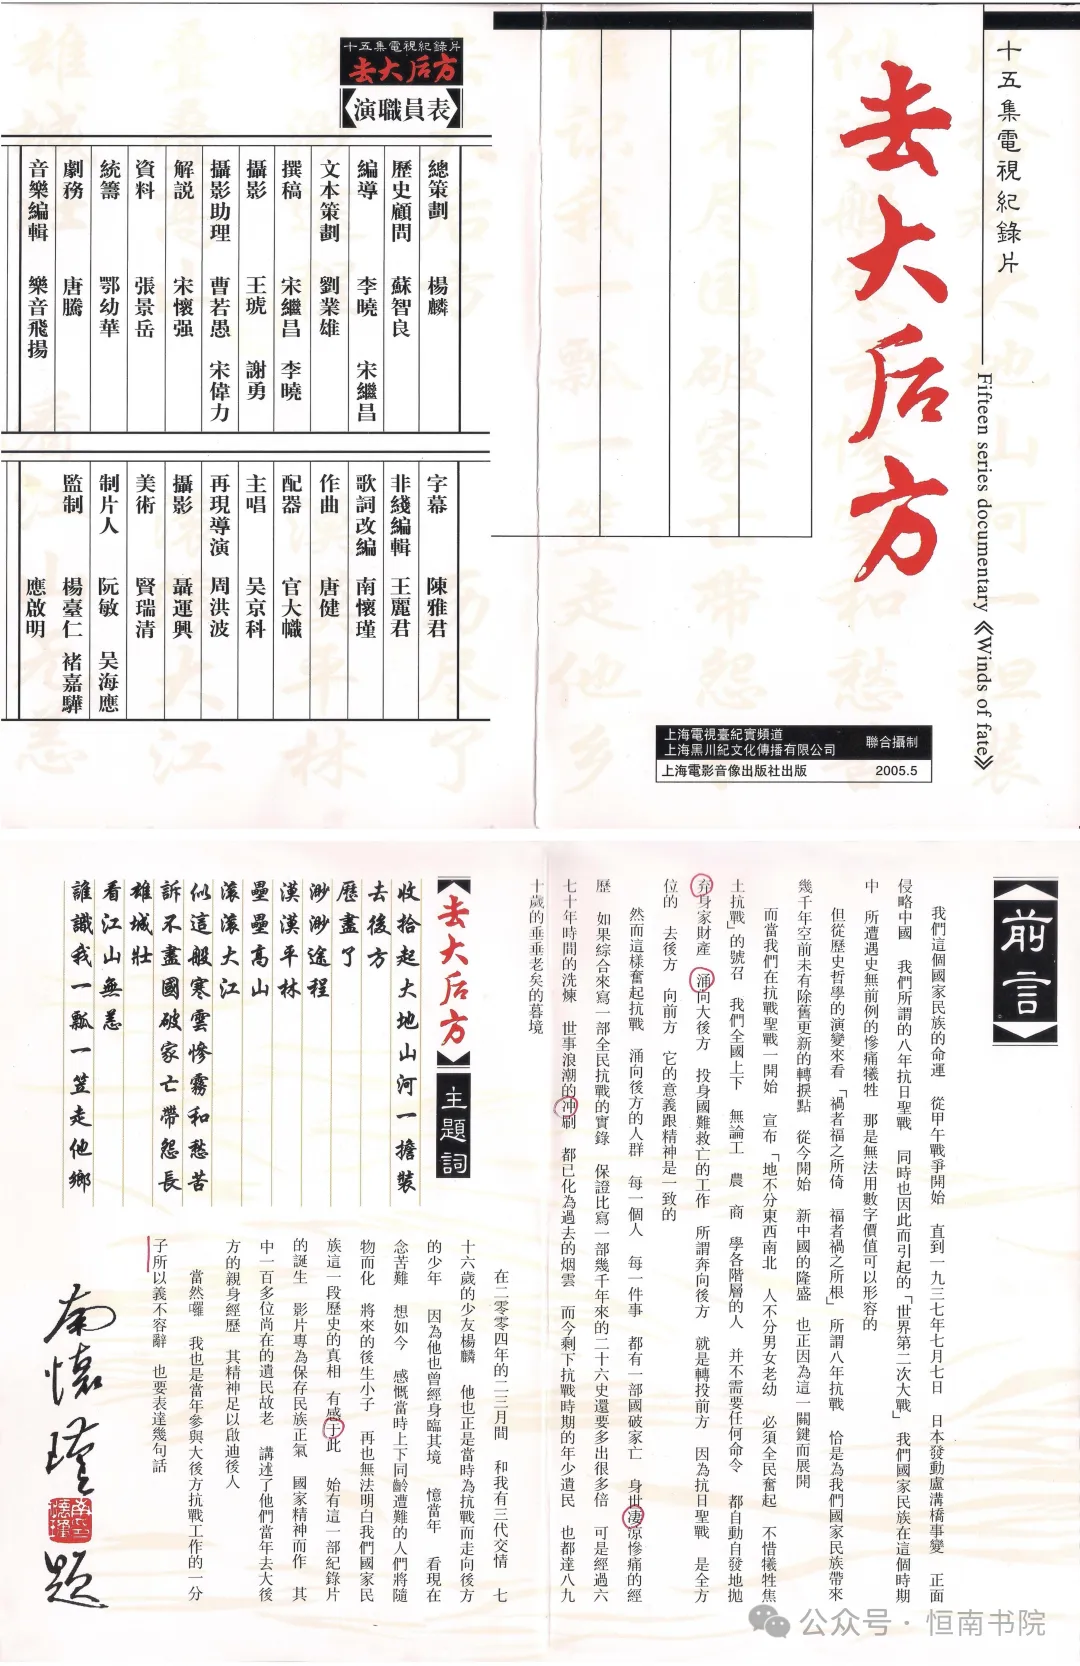 十五集電視紀錄片
去大后方
Fifteen series documentary 《Winds of fate》
上海電視臺紀實頻道
上海黑川紀文化傳播有限公司
聯合攝制
上海電影音像出版社出版
2005.5
十五集電視紀錄片
去大后方
演職員表
總策劃 楊麟
歷史顧問 蘇智良
編導 李曉 宋繼昌
文本策劃 劉業雄
撰稿 宋繼昌 李曉
攝影 王琥 謝勇
攝影助理 曹若愚 宋偉力
解説 宋懷强
資料 張景岳
統籌 鄂幼華
劇務 唐騰
音樂編輯 樂音飛揚
字幕 陳雅君
非綫編輯 王麗君
歌詞改編 南懷瑾
作曲 唐健
配器 官大幟
主唱 吴京科
再現導演 周洪波
攝影 聶運興
美術 賢瑞清
制片人 阮敏 吴海應
監制 楊臺仁 褚嘉驊
應啟明
前言
我們這個國家民族的命運 從甲午戰爭開始 直到一九三七年七月七日 日本發動盧溝橋事變 正面
侵略中國 我們所謂的八年抗日聖戰 同時也因此而引起的「世界第二次大戰」 我們國家民族在這個時期
中 所遭遇史無前例的慘痛犧牲 那是無法用數字價值可以形容的
但從歷史哲學的演變來看 「禍者福之所倚 福者禍之所根」 所謂八年抗戰 恰是為我們國家民族帶來
幾千年空前未有除舊更新的轉捩點 從今開始 新中國的隆盛 也正因為這一關鍵而展開
而當我們在抗戰聖戰一開始 宣布「地不分東西南北 人不分男女老幼 必須全民奮起 不惜犧牲焦
土抗戰」的號召 我們全國上下 無論工 農 商 學各階層的人 并不需要任何命令 都自動自發地拋
弃身家財産 涌向大後方 投身國難救亡的工作 所謂奔向後方 就是轉投前方 因為抗日聖戰 是全方
位的 去後方 向前方 它的意義跟精神是一致的
然而這樣奮起抗戰 涌向後方的人群 每一個人 每一件事 都有一部國破家亡 身世凄凉慘痛的經
歷 如果綜合來寫一部全民抗戰的實錄 保證比寫一部幾千年來的二十六史還要多出很多倍 可是經過六
七十年時間的洗煉 世事浪潮的冲刷 都已化為過去的烟雲 而今剩下抗戰時期的年少遺民 也都達八九
十歲的垂垂老矣的暮境
去大后方
主題詞
收拾起大地山河一擔裝
去後方
歷盡了
渺渺途程
漠漠平林
壘壘高山
滚滚大江
似這般寒雲慘霧和愁苦
訴不盡國破家亡帶怨長
雄城壯
看江山無恙
誰識我一瓢一笠走他鄉
在二零零四年的二三月間 和我有三代交情 七
十六歲的少友楊麟 他也正是當時為抗戰而走向後方
的少年 因為他也曾經身臨其境 憶當年 看現在
念苦難 想如今 感慨當時上下同齡遭難的人們將隨
物而化 將來的後生小子 再也無法明白我們國家民
族這一段歷史的真相 有感于此 始有這一部紀錄片
的誕生 影片專為保存民族正氣 國家精神而作 其
中一百多位尚在的遺民故老 講述了他們當年去大後
方的親身經歷 其精神足以啟迪後人
當然囉 我也是當年參與大後方抗戰工作的一分
子所以義不容辭 也要表達幾句話
南懷瑾題
公众号·恒南书院